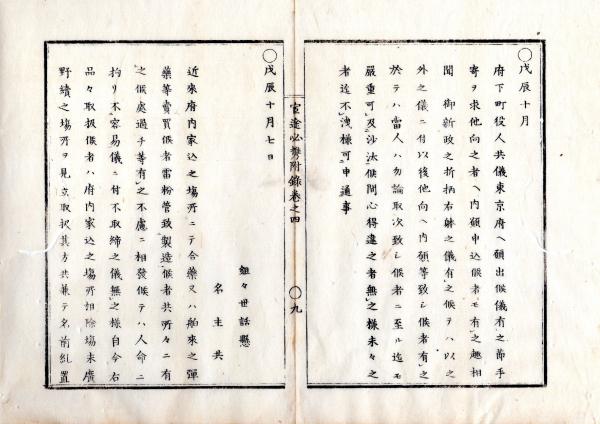 ○戊辰十月
府下町役人共儀東京府ヘ願出候儀有之節手
寄ヲ求他向之者ヘ内願申込候者モ有之趣相
聞 御新政之折柄右躰之儀有之候テハ以之
外之儀ニ付以後他向ヘ内願等致シ候者有之
於テハ當人ハ勿論取次致シ候者ニ至ル迄モ
嚴重可及沙汰候間心得違之者無之様末々之
者迄不洩様可申通事
宣達必携附錄卷之四
○九
○戊辰十月七日
組々世話懸
名主共
近來府内家込之場所ニテ合藥又ハ舶來之彈
藥等賣買候者雷粉管致製造候者共所々ニ有
之候處過チ等有之不慮ニ相發候テハ人命ニ
拘リ不容易儀ニ付不取締之儀無之様自今右
品々取扱候者ハ府内家込之場所相除塲末廣
野續之塲所ヲ見立取扱其方共兼テ名前糺置